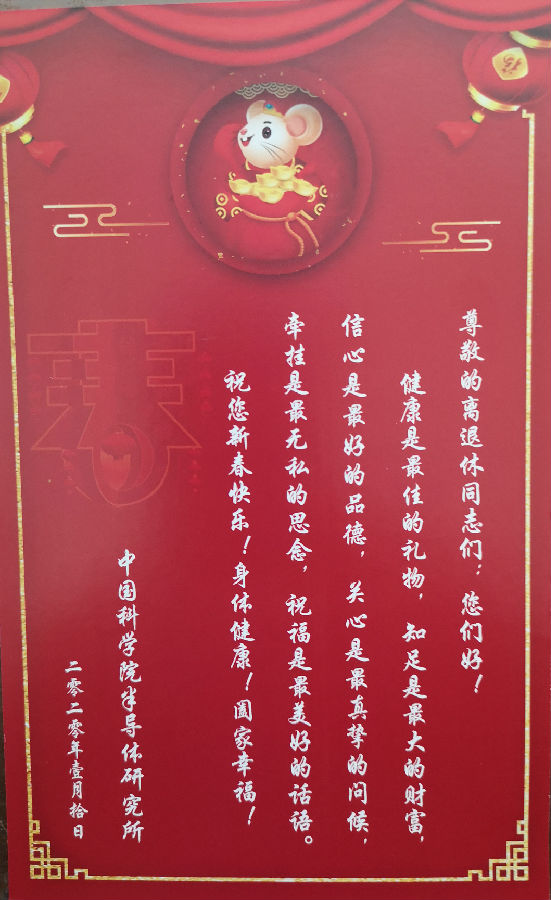 尊敬的离退休同志们：您们好！
健康是最佳的礼物，知足是最大的财富，
信心是最好的品德，关心是最真挚的问候，
牵挂是最无私的思念，祝福是最美好的话语。
祝您新春快乐！身体健康！阖家幸福！
中国科学院半导体研究所
二零二零年壹月拾日
春